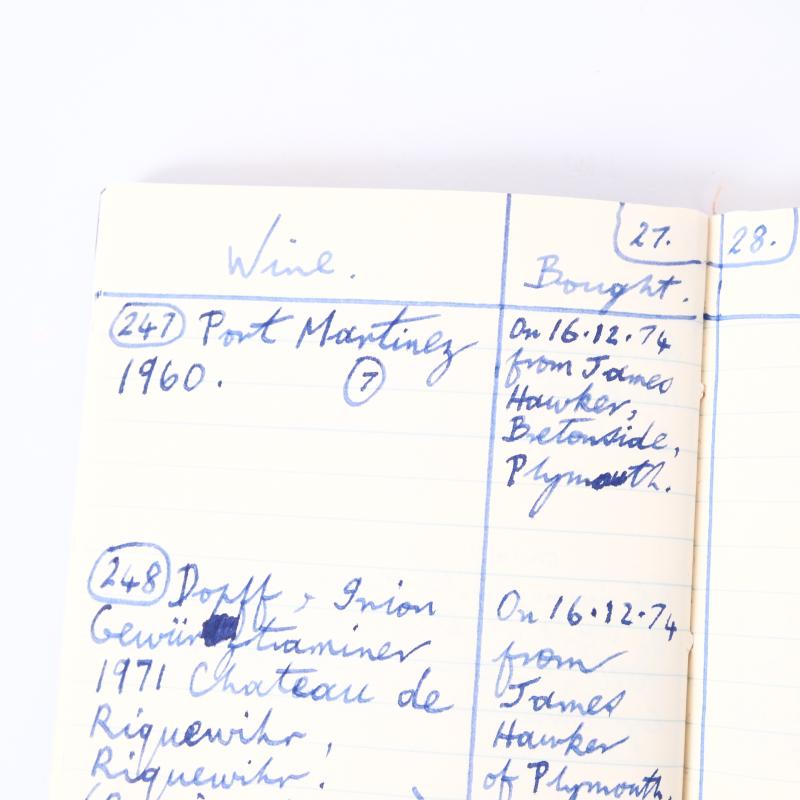 27.
28.
Wine.
Bought.
247 Port Martinez
1960. 7
On 16.12.74
from James
Hawker,
Bretonside,
Plymouth.
248 Dopff & Irion
Gewürztraminer
1971 Chateau de
Riquewihr,
Riquewihr.
On 16.12.74
from
James
Hawker
of Plymouth.